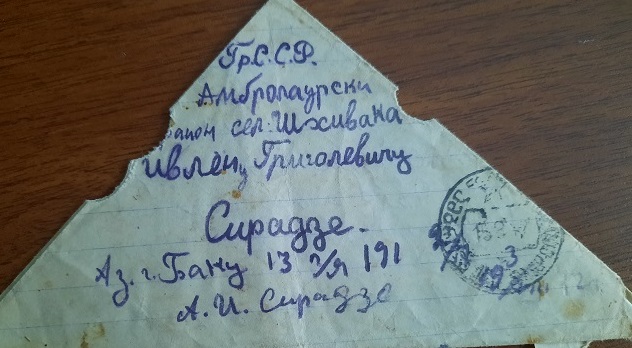 Гр.С.С.Р.
Амбролаурски
район сел. Шхивана
Ивлену Григолевичу
Сирадзе.
Аз. г. Баку 13 п/я 191
А. И. Сирадзе